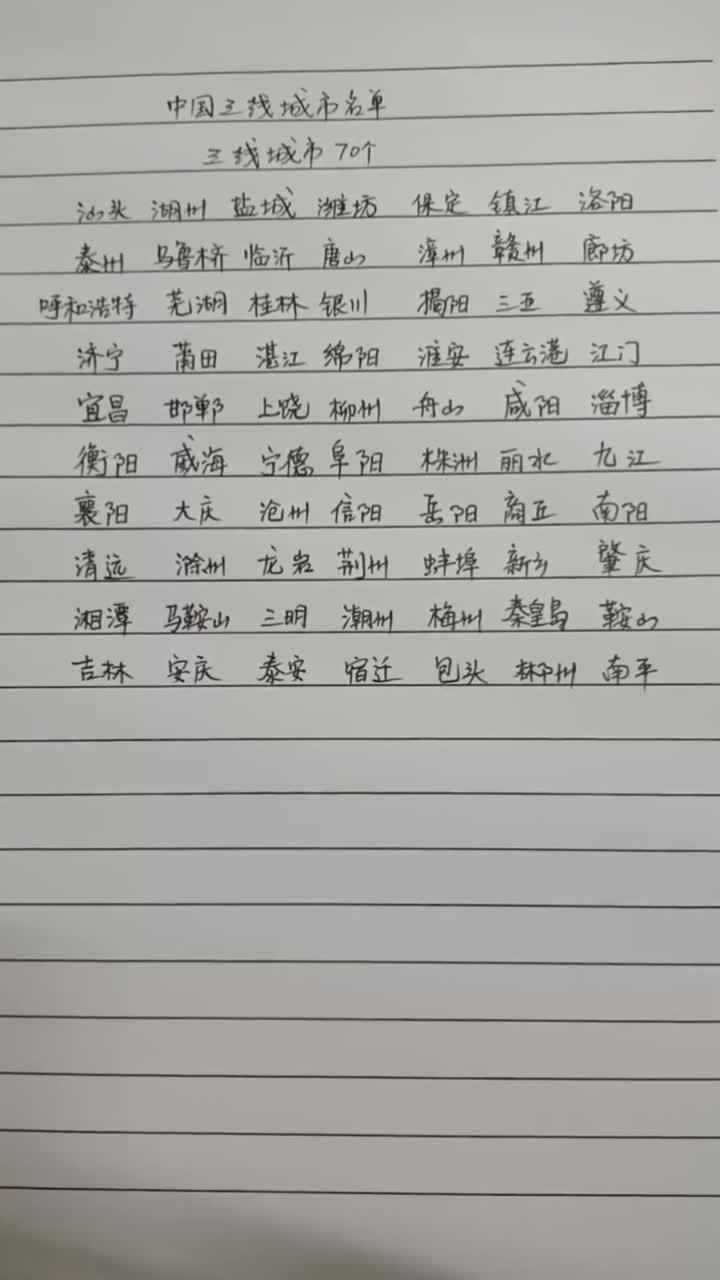 中国三线城市名单
三线城市70个
汕头 湖州 盐城 潍坊 保定 镇江 洛阳
泰州 乌鲁木齐 临沂 唐山 漳州 赣州 廊坊
呼和浩特 芜湖 桂林 银川 揭阳 三亚 遵义
济宁 莆田 湛江 绵阳 淮安 连云港 江门
宜昌 邯郸 上饶 柳州 舟山 咸阳 淄博
衡阳 威海 宁德 阜阳 株洲 丽水 九江
襄阳 大庆 沧州 信阳 岳阳 商丘 南阳
清远 滁州 龙岩 荆州 蚌埠 新乡 肇庆
湘潭 马鞍山 三明 潮州 梅州 秦皇岛 鞍山
吉林 安庆 泰安 宿迁 包头 郴州 南平